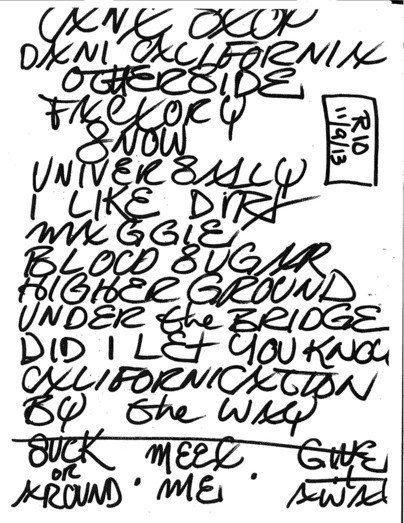 CANT STOP
DANI CALIFORNIA
OTHERSIDE
FACTORY
SNOW
RIO
11/9/13
UNIVERSALLY
I LIKE DIRT
MAGGIE
BLOOD SUGAR
HIGHER GROUND
UNDER the BRIDGE
DID I LET YOU KNOW
CALIFORNICATION
BY the WAY
SUCK MEET GIVE
or it
AROUND · ME · AWAY